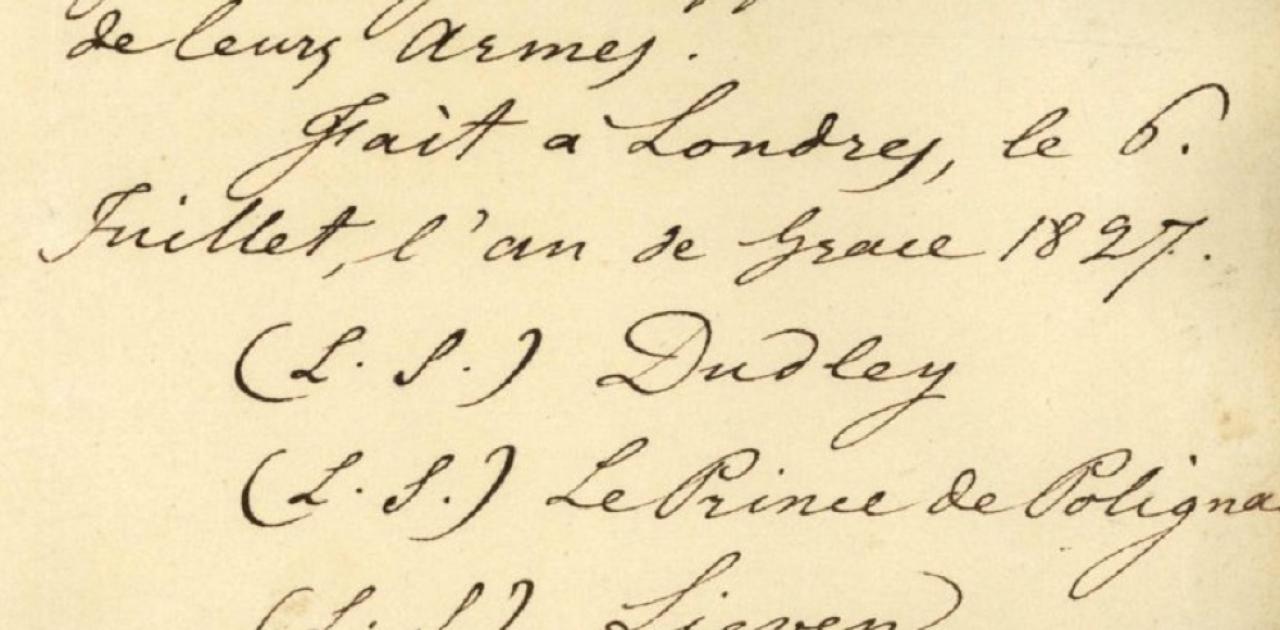 de leurs Armes.
Fait à Londres, le 6.
Juillet, l'an de Grace 1827.
(L. S.) Dudley
(L. S.) Le Prince de Poligna
(L. S.) Lieven